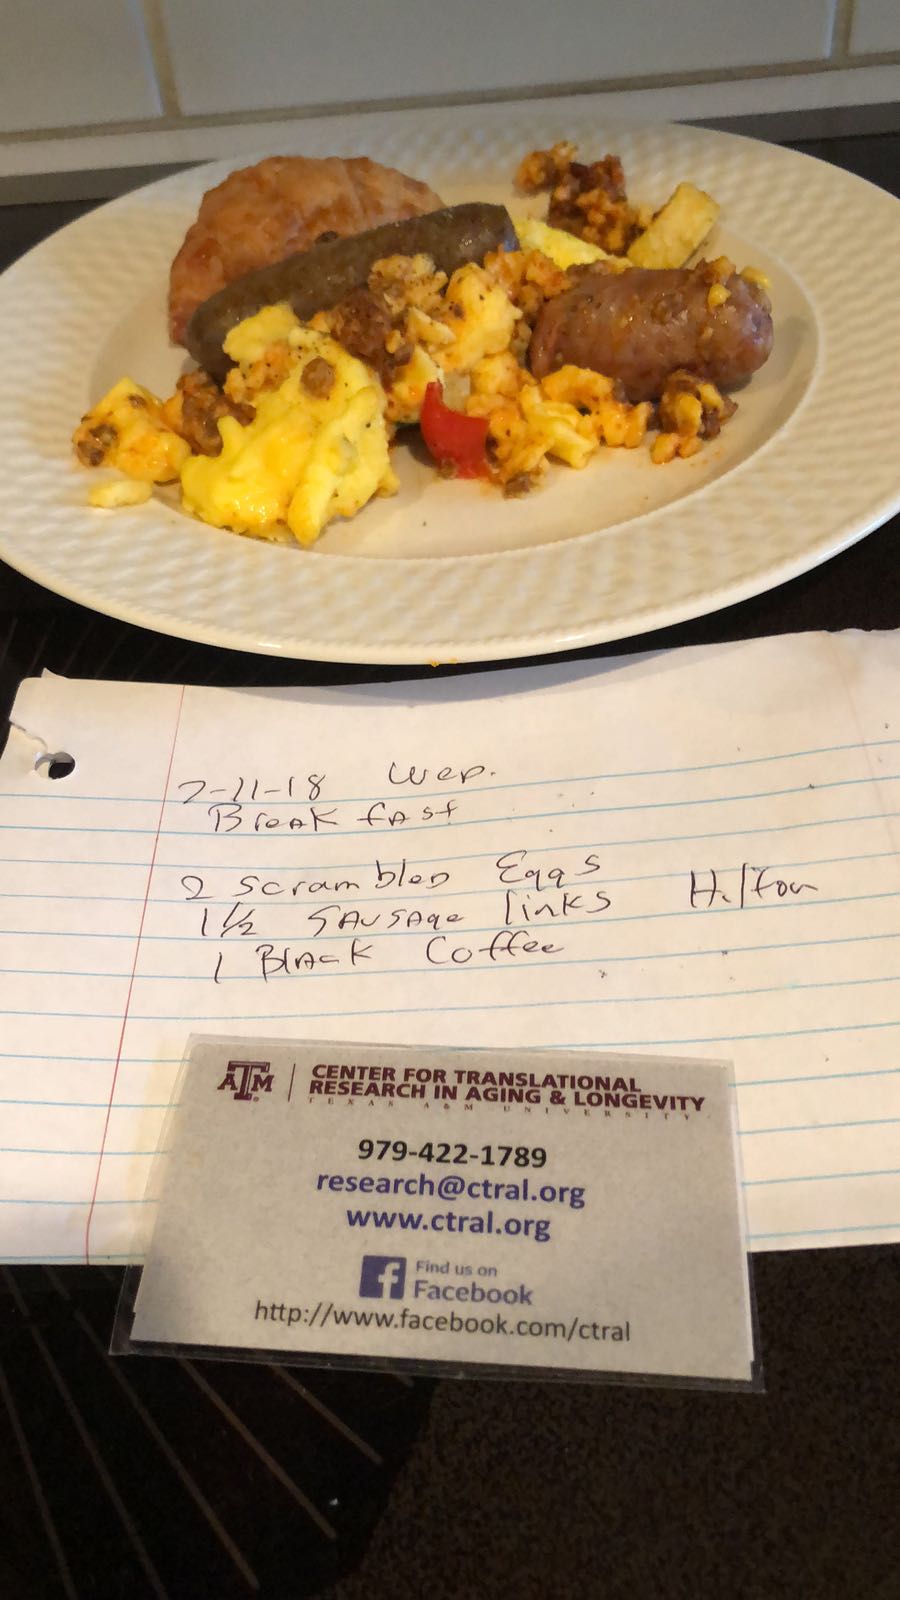 7-11-18 Wed.
Breakfast
2 Scrambled Eggs
1 1/2 Sausage links Hilton
1 Black Coffee
ATM CENTER FOR TRANSLATIONAL
RESEARCH IN AGING & LONGEVITY
TEXAS A&M UNIVERSITY
979-422-1789
research@ctral.org
www.ctral.org
f Find us on
Facebook
http://www.facebook.com/ctral